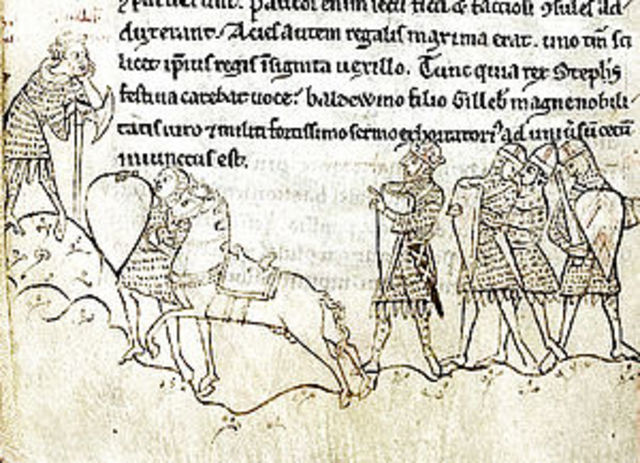 Pauci enim secū ficti & facciosi ɔsules ad
duxerant. Acies autem regalis maxima erat. uno tm̄ sci
licet ip̄ius regis īsignita uexillo. Tunc quia rex Steph̄s
festiua carebat uoce. baldewino filio Gilleb̄ magne nobili
tatis uiro ⁊ militi fortissimo sermo exhortatoriꝰ ad uniūsū cetū
iniunctus est.